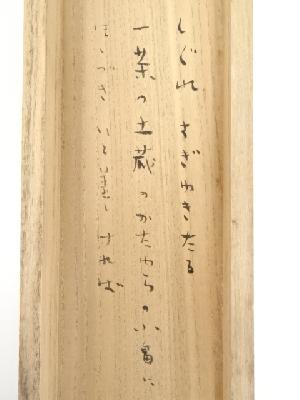 しぐれ すぎゆきたる
一葉の土蔵のかたわらの小畠に
づき いと美しければ